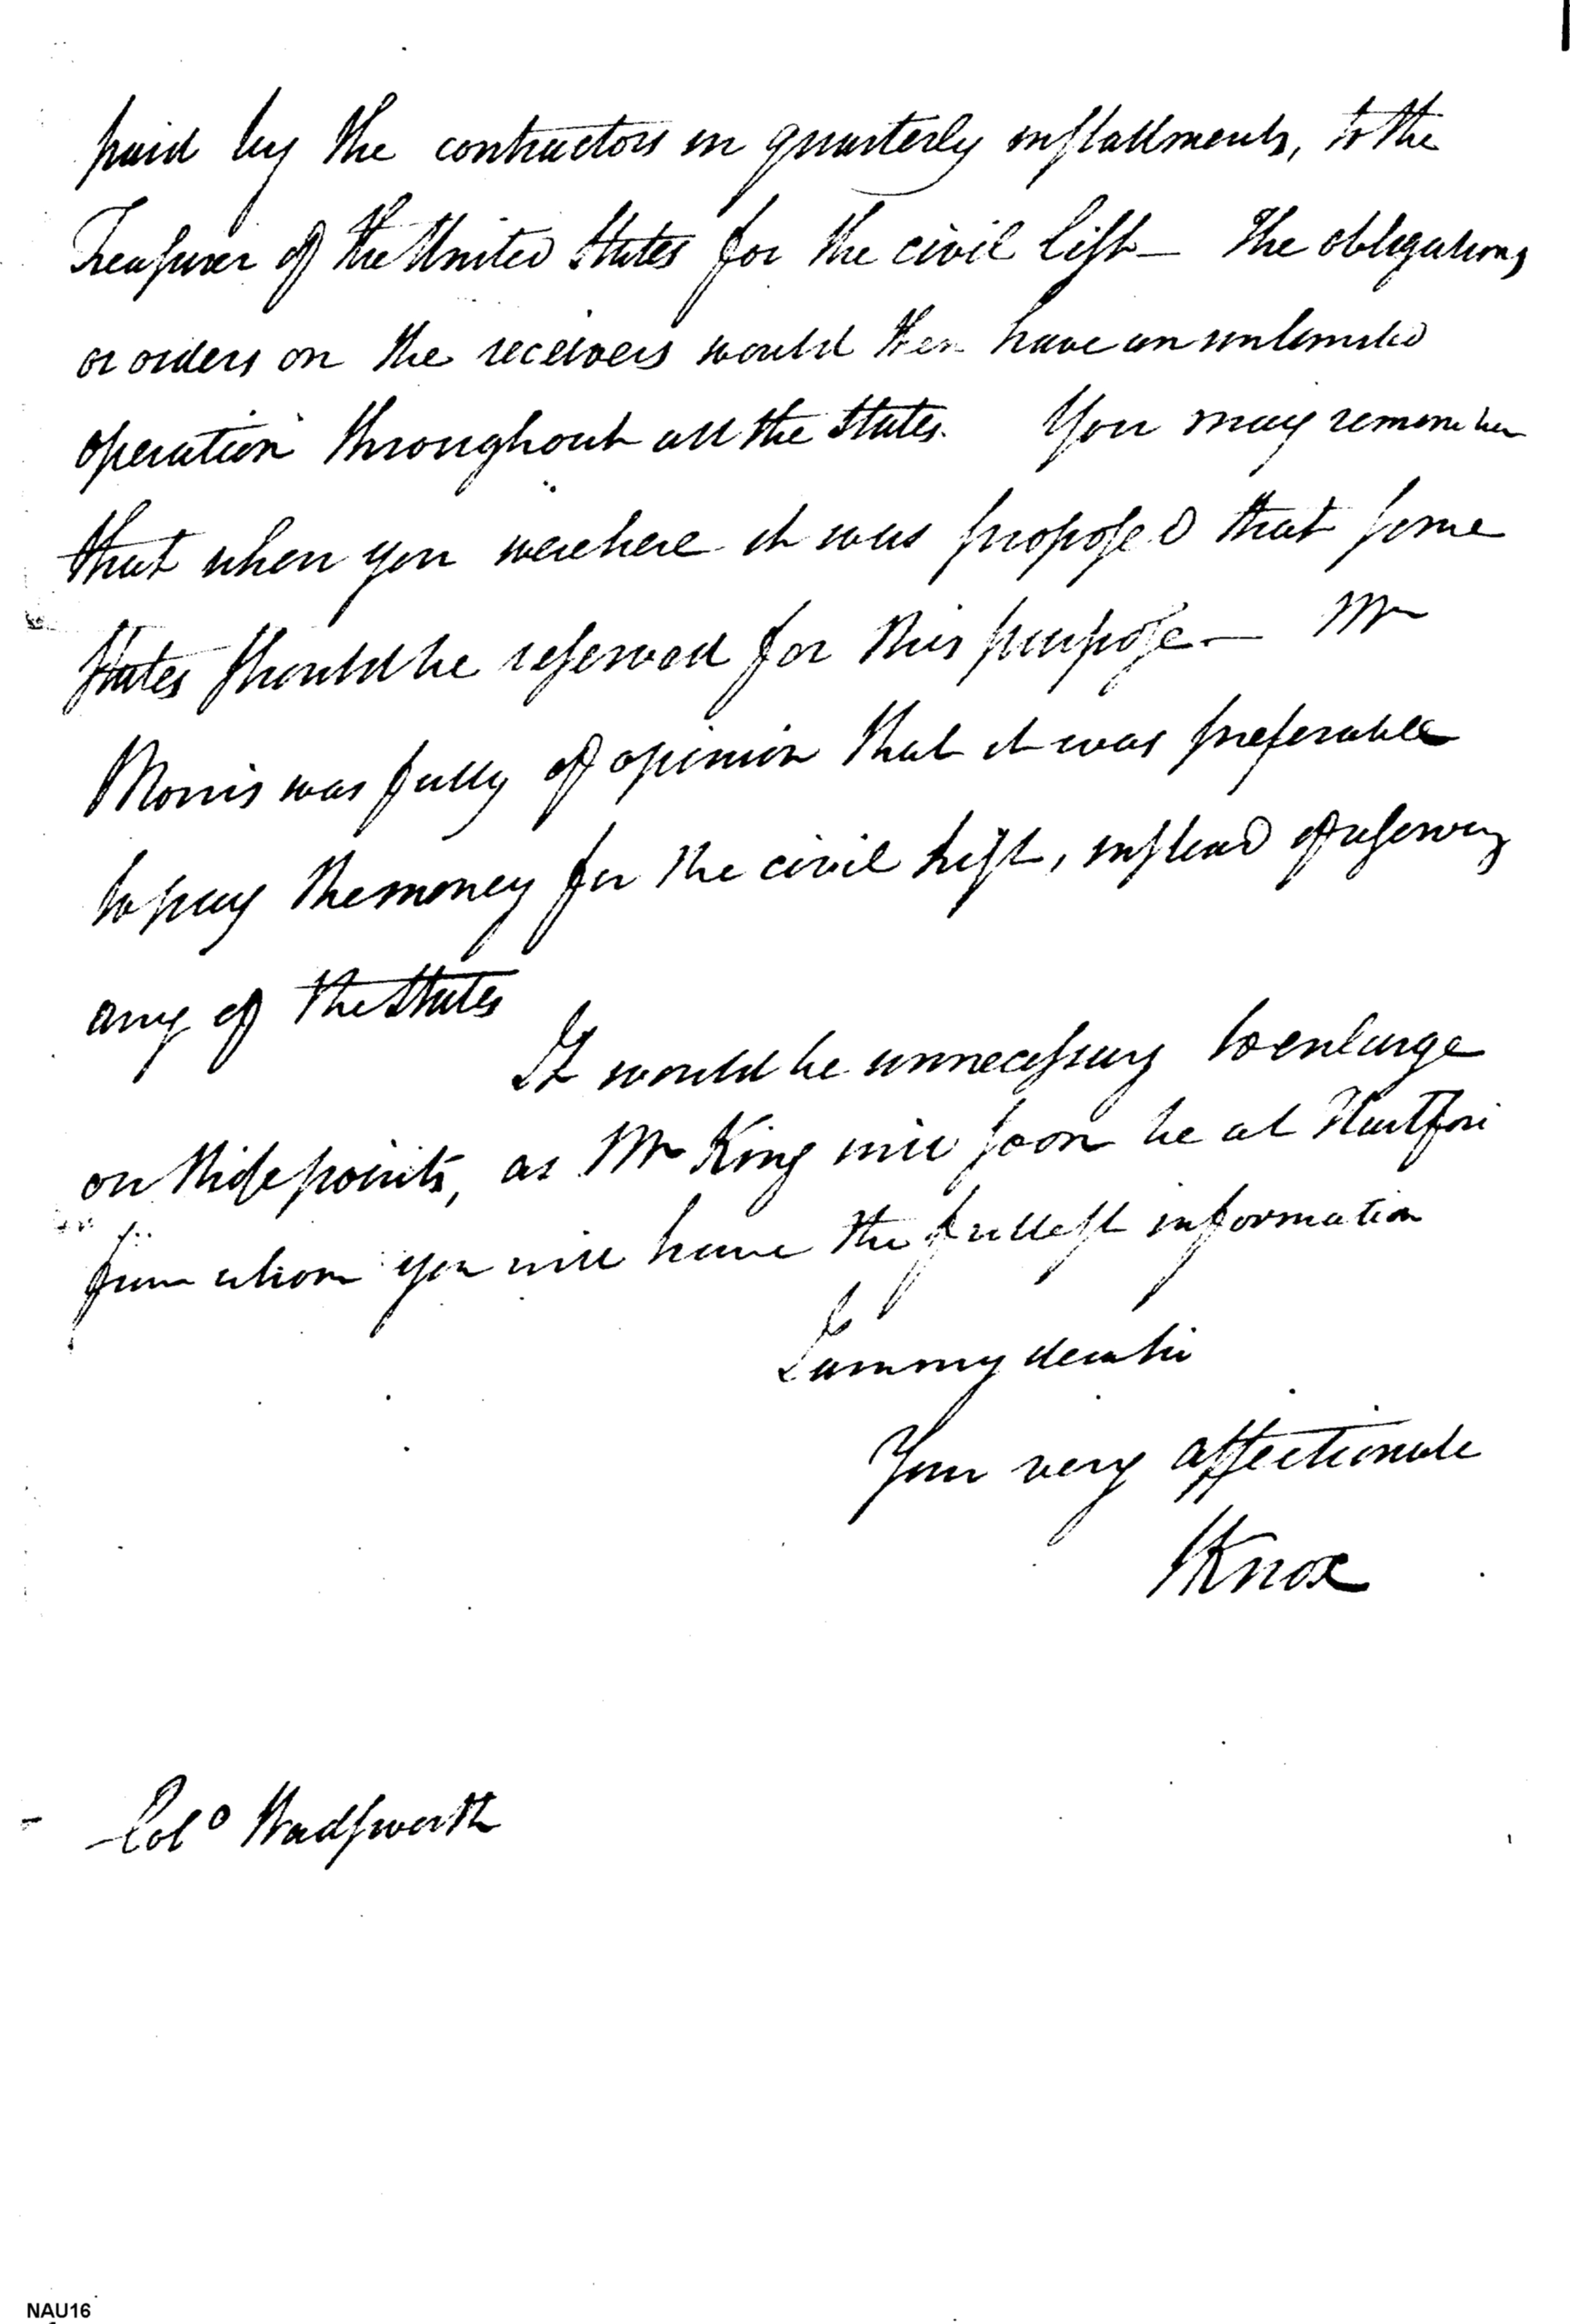 paid by the contractors in quarterly installments, to the
Treasurer of the United States for the civil list— The obligations
or orders on the receivers would then have an unlimited
operation throughout all the States. You may remember
that when you were here it was proposed that some
States should be reserved for this purpose— Mr
Morris was fully of opinion that it was preferable
to pay the money for the civil list, instead of reserving
any of the States
It would be unnecessary to enlarge
on these points, as Mr King will soon be at Hartford
from whom you will have the fullest information
I am my dear sir
Your very affectionate
HKnox
Colo Wadsworth
NAU16